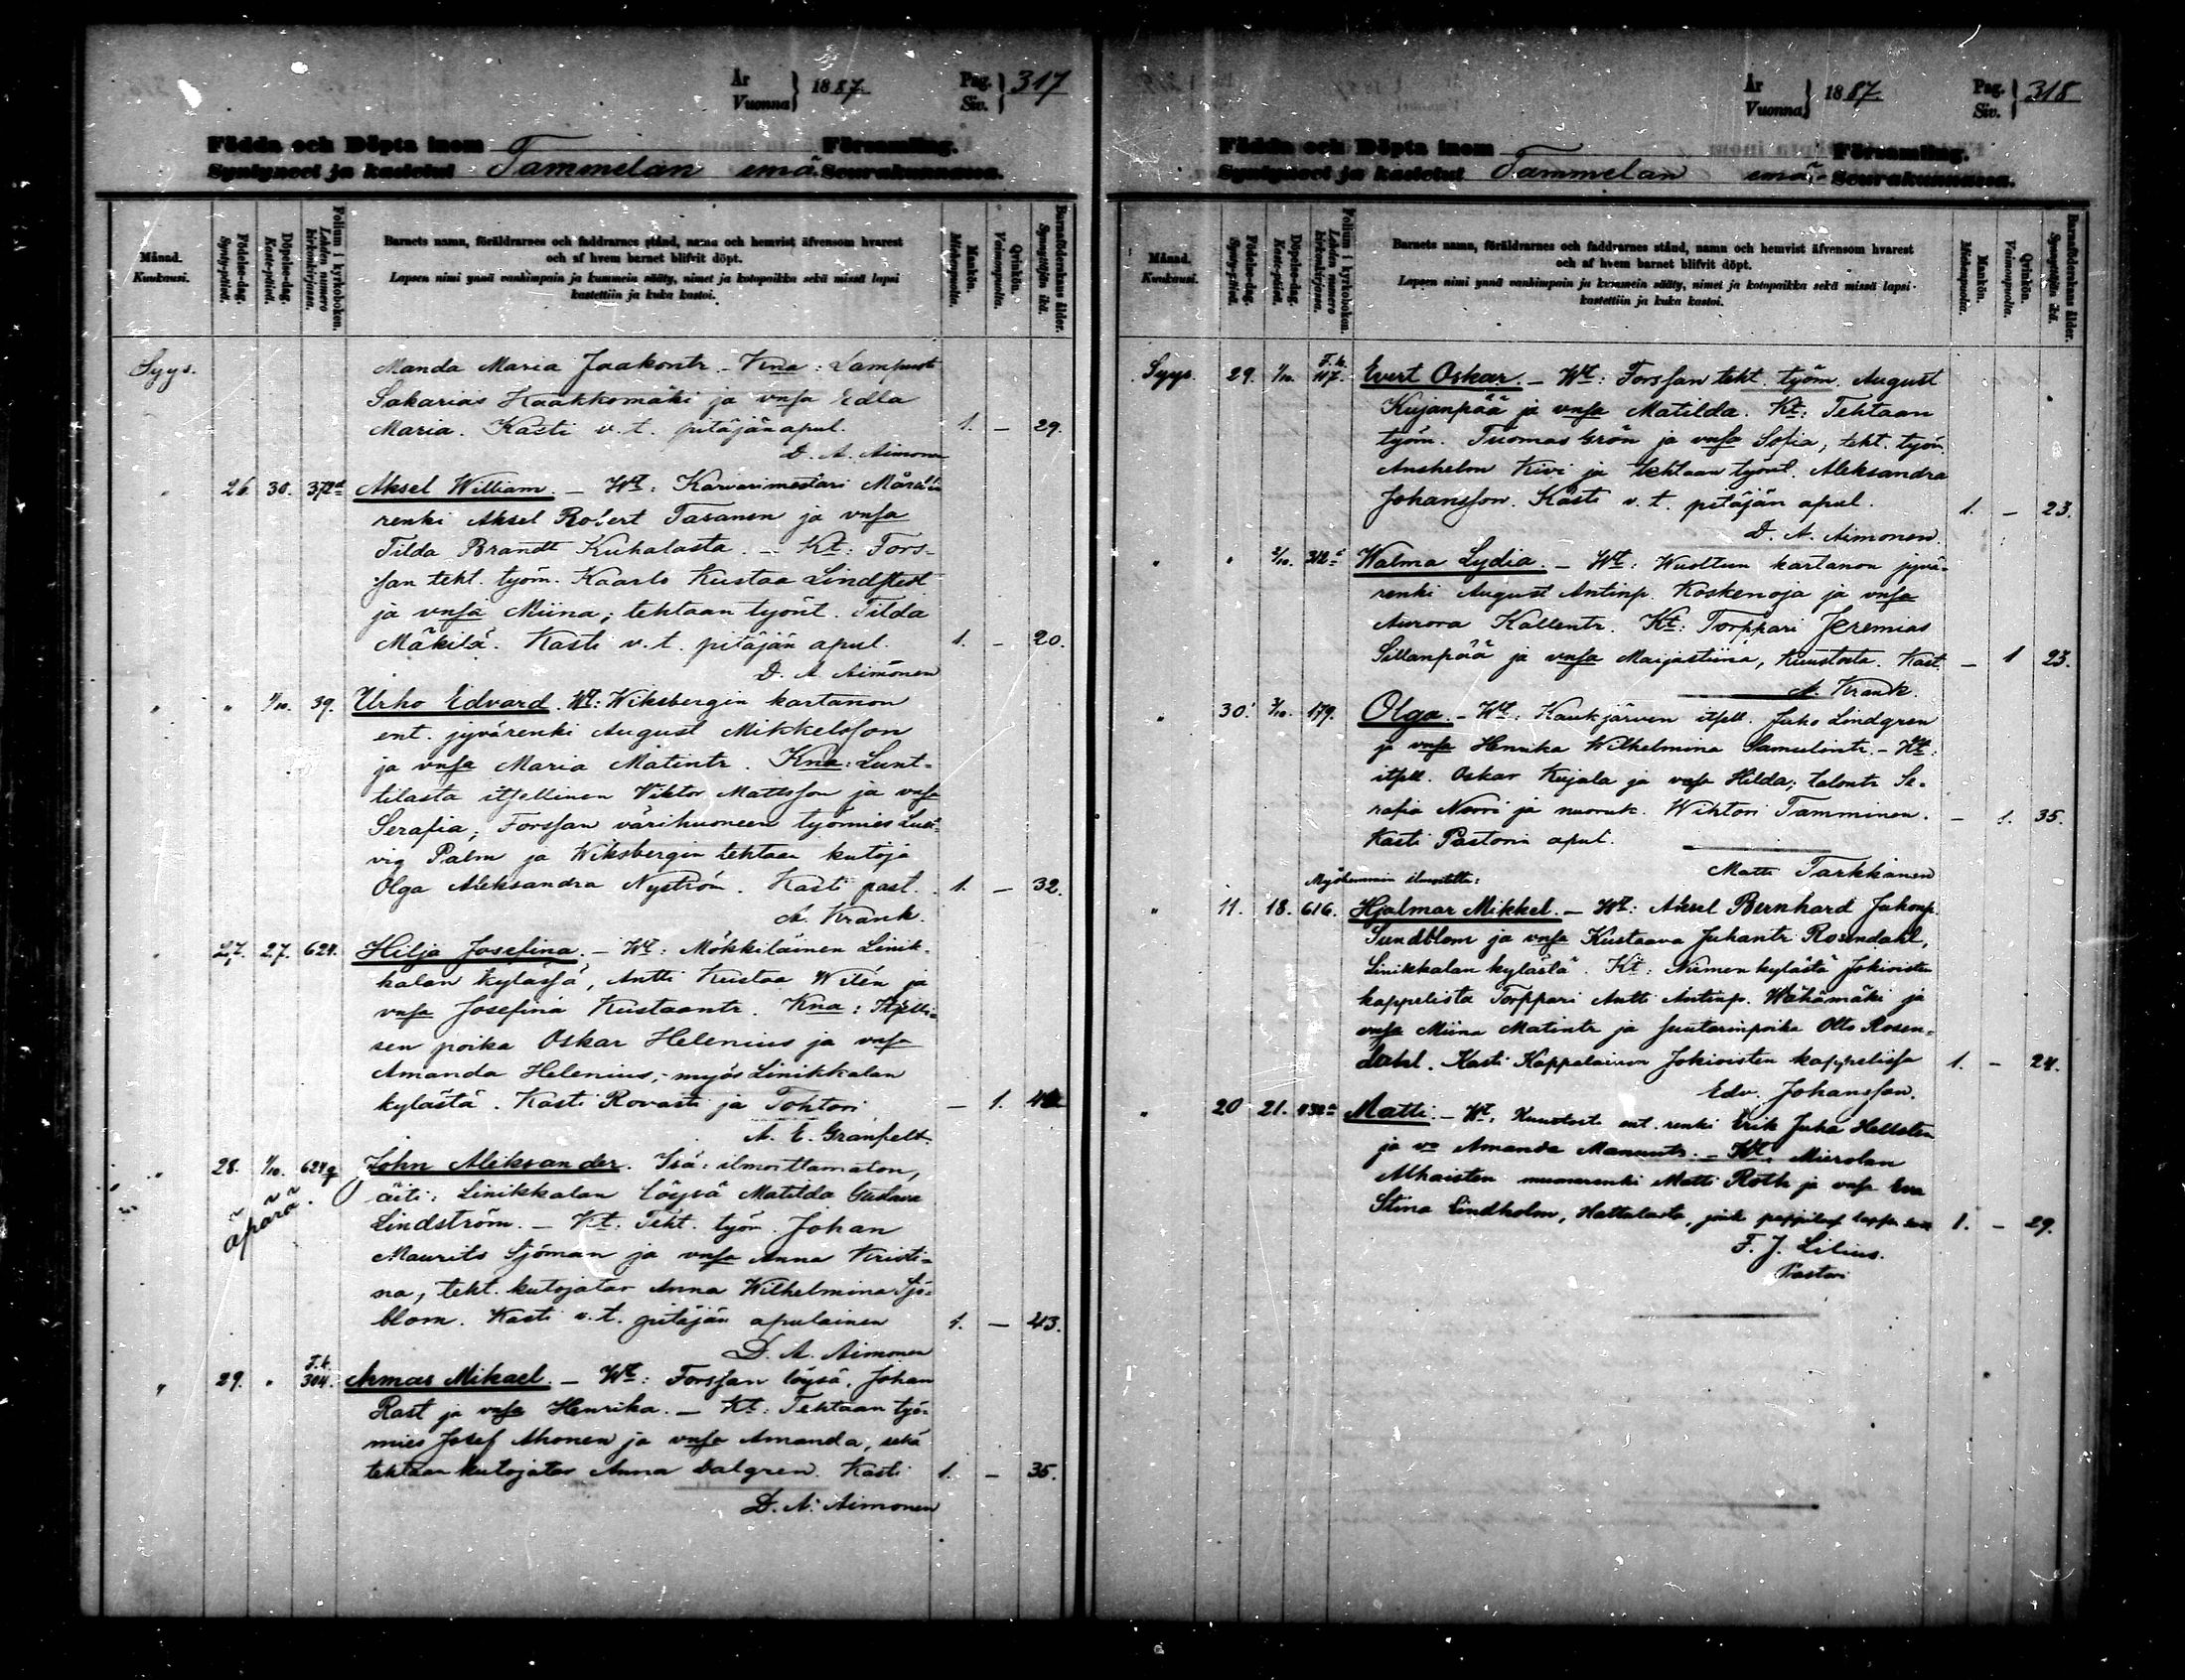 År
Vuonna } 1887.
Pag.
Siv. } 317
Födda och Döpta inom Församling.
Syntyneet ja kastetut Tammelan emä Seurakunnassa.
Månad.
Kuukausi.
Födelse-dag.
Synty-päivä.
Döpelse-dag.
Kaste-päivä.
Folium i kyrkoboken.
Lehden numero kirkonkirjassa.
Barnets namn, föräldrarnes och faddrarnes stånd, namn och hemvist äfvensom hvarest
och af hvem barnet blifvit döpt.
Lapsen nimi ynnä vanhimpain ja kummein sääty, nimet ja kotopaikka sekä missä lapsi
kastettiin ja kuka kastoi.
Mankön.
Miehenpuolia.
Qvinkön.
Vaimonpuolia.
Barnaföderskans ålder.
Synnyttäjän ikä.
Syys. Manda Maria Jaakontr. - Kna: Lampuoti
Sakarias Kaakkomäki ja vnsa Edla
Maria. Kasti v. t. pitäjän apul. 1. - 29.
D. A. Aimonen
" 26. 30. 372 Aksel William. - Wt: Karvarimestari
renki Aksel Robert Tasanen ja vnsa
Tilda Brandt Kuhalasta. - Kt: Fors-
san teht. työm. Kaarlo Kustaa Lindstedt
ja vnsa Miina; tehtaan työnt. Tilda
Mäkilä. Kasti v. t. pitäjän apul. 1. - 20.
D. A. Aimonen
" " 1/10. 39. Urho Edvard. Wt: Wiksbergin kartanon
ent. jyvärenki August Mikkelsson
ja vnsa Maria Matintr. Kna: Lunt-
tilasta itsellinen Viktor Mattsson ja vnsa
Serafia; Forssan värihuoneen työmies Lud-
vig Palm ja Wiksbergin tehtaan kutoja
Olga Aleksandra Nyström. Kasti past. 1. - 32.
A. Krank.
" 27. 27. 624. Hilja Josefina. - Wt: Mökkiläinen Linik-
kalan kylässä, Antti Kustaa Witén ja
vnsa Josefina Kustaantr. Kna: Itselli-
sen poika Oskar Helenius ja vnsa
Amanda Helenius, myös Linikkalan
kylästä. Kasti Rovasti ja Tohtori - 1.
A. E. Granfelt.
" 28. 1/10. 624 John Aleksander. Isä: ilmoittamaton,
äpärä. äiti: Linikkalan löysä Matilda Gustava
Lindström. - Kt: Teht. työm. Johan
Maurits Sjöman ja vnsa Anna Kristi-
na, teht. kutojatar Anna Wilhelmina Sjö-
blom. Kasti v. t. pitäjän apulainen 1. - 43.
D. A. Aimonen
" 29. " T.k. 304. Armas Mikael. - Wt: Forssan löysä, Johan
Rast ja vnsa Henrika. - Kt: Tehtaan työ-
mies Josef Ahonen ja vnsa Amanda, sekä
tehtaan kutojatar Anna Dalgren. Kasti 1. - 35.
D. A. Aimonen
År
Vuonna } 1887.
Pag.
Siv. } 318
Födda och Döpta inom Församling.
Syntyneet ja kastetut Tammelan emä- Seurakunnassa.
Månad.
Kuukausi.
Födelse-dag.
Synty-päivä.
Döpelse-dag.
Kaste-päivä.
Folium i kyrkoboken.
Lehden numero kirkonkirjassa.
Barnets namn, föräldrarnes och faddrarnes stånd, namn och hemvist äfvensom hvarest
och af hvem barnet blifvit döpt.
Lapsen nimi ynnä vanhimpain ja kummein sääty, nimet ja kotopaikka sekä missä lapsi
kastettiin ja kuka kastoi.
Mankön.
Miehenpuolia.
Qvinkön.
Vaimonpuolia.
Barnaföderskans ålder.
Synnyttäjän ikä.
Syys. 29. 1/10. T.k. 117. Evert Oskar. - Wt: Forssan teht. työm. August
Kujanpää ja vnsa Matilda. Kt: Tehtaan
työm. Tuomas Grön ja vnsa Sofia, teht. työm.
Anshelm Kivi ja tehtaan työnt. Aleksandra
Johansson. Kasti v. t. pitäjän apul. 1. - 23.
D. A. Aimonen.
" " 2/10. 312 Walma Lydia. - Wt: kartanon jyvä-
renki August Antinp. Koskenoja ja vnsa
Aurora Kallentr. Kt: Torppari Jeremias
Sillanpää ja vnsa Maijastiina, Kuustosta. Kast. - 1 23.
A. Krank.
" 30. 3/10. 179. Olga. - Wt: Kaukjärven itsell. Juho Lindgren
ja vnsa Henrika Wilhelmina Samulintr. - Kt:
itsell. Oskar Kujala ja vnsa Hilda; talontr Se-
rafia Norri ja nuoruk. Wihtori Tamminen. - 1. 35.
Kasti Pastorin apul.
Matti Tarkkanen
Myöhemmin ilmoitettu:
" 11. 18. 616. Hjalmar Mikkel. - Wt: Aksel Bernhard Jakonp.
Sundblom ja vnsa Kustaava Juhantr. Rosendahl,
Linikkalan kylästä. Kt: Niemen kylästä Jokioisten
kappelista Torppari Antti Antinp. Wähämäki ja
vnsa Miina Matintr. ja suutarinpoika Otto Rosen-
dahl. Kasti Kappalainen Jokioisten kappelissa 1. - 24.
Edv. Johansson.
" 20 21. Matti. - Wt: Kuustost. ent. renki Erik Juha Hellsten
ja vo Amanda - Kt: Mierolan
Alhaisten muonarenki Matti Roth ja vnsa Eva
Stina Lindholm, Hattulasta, 1. - 29.
F. J. Lilius.
Pastori